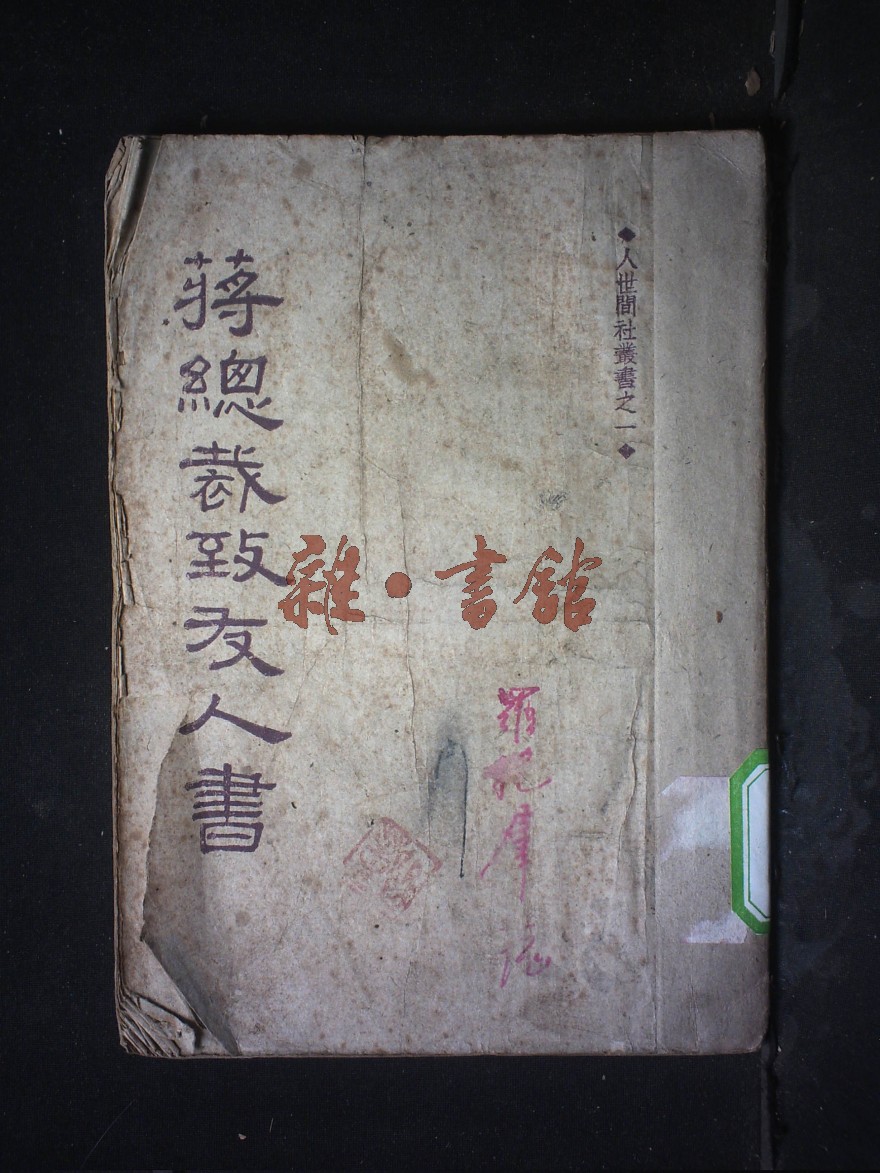 ◆人世間社叢書之一◆
蔣總裁致友人書
雜·書館